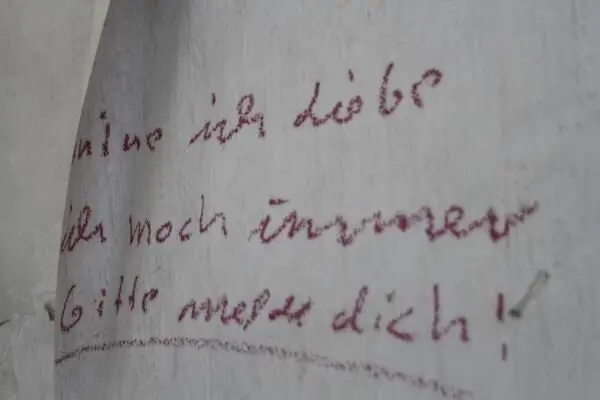 nine ich liebe
ich noch immer
Bitte melde dich!